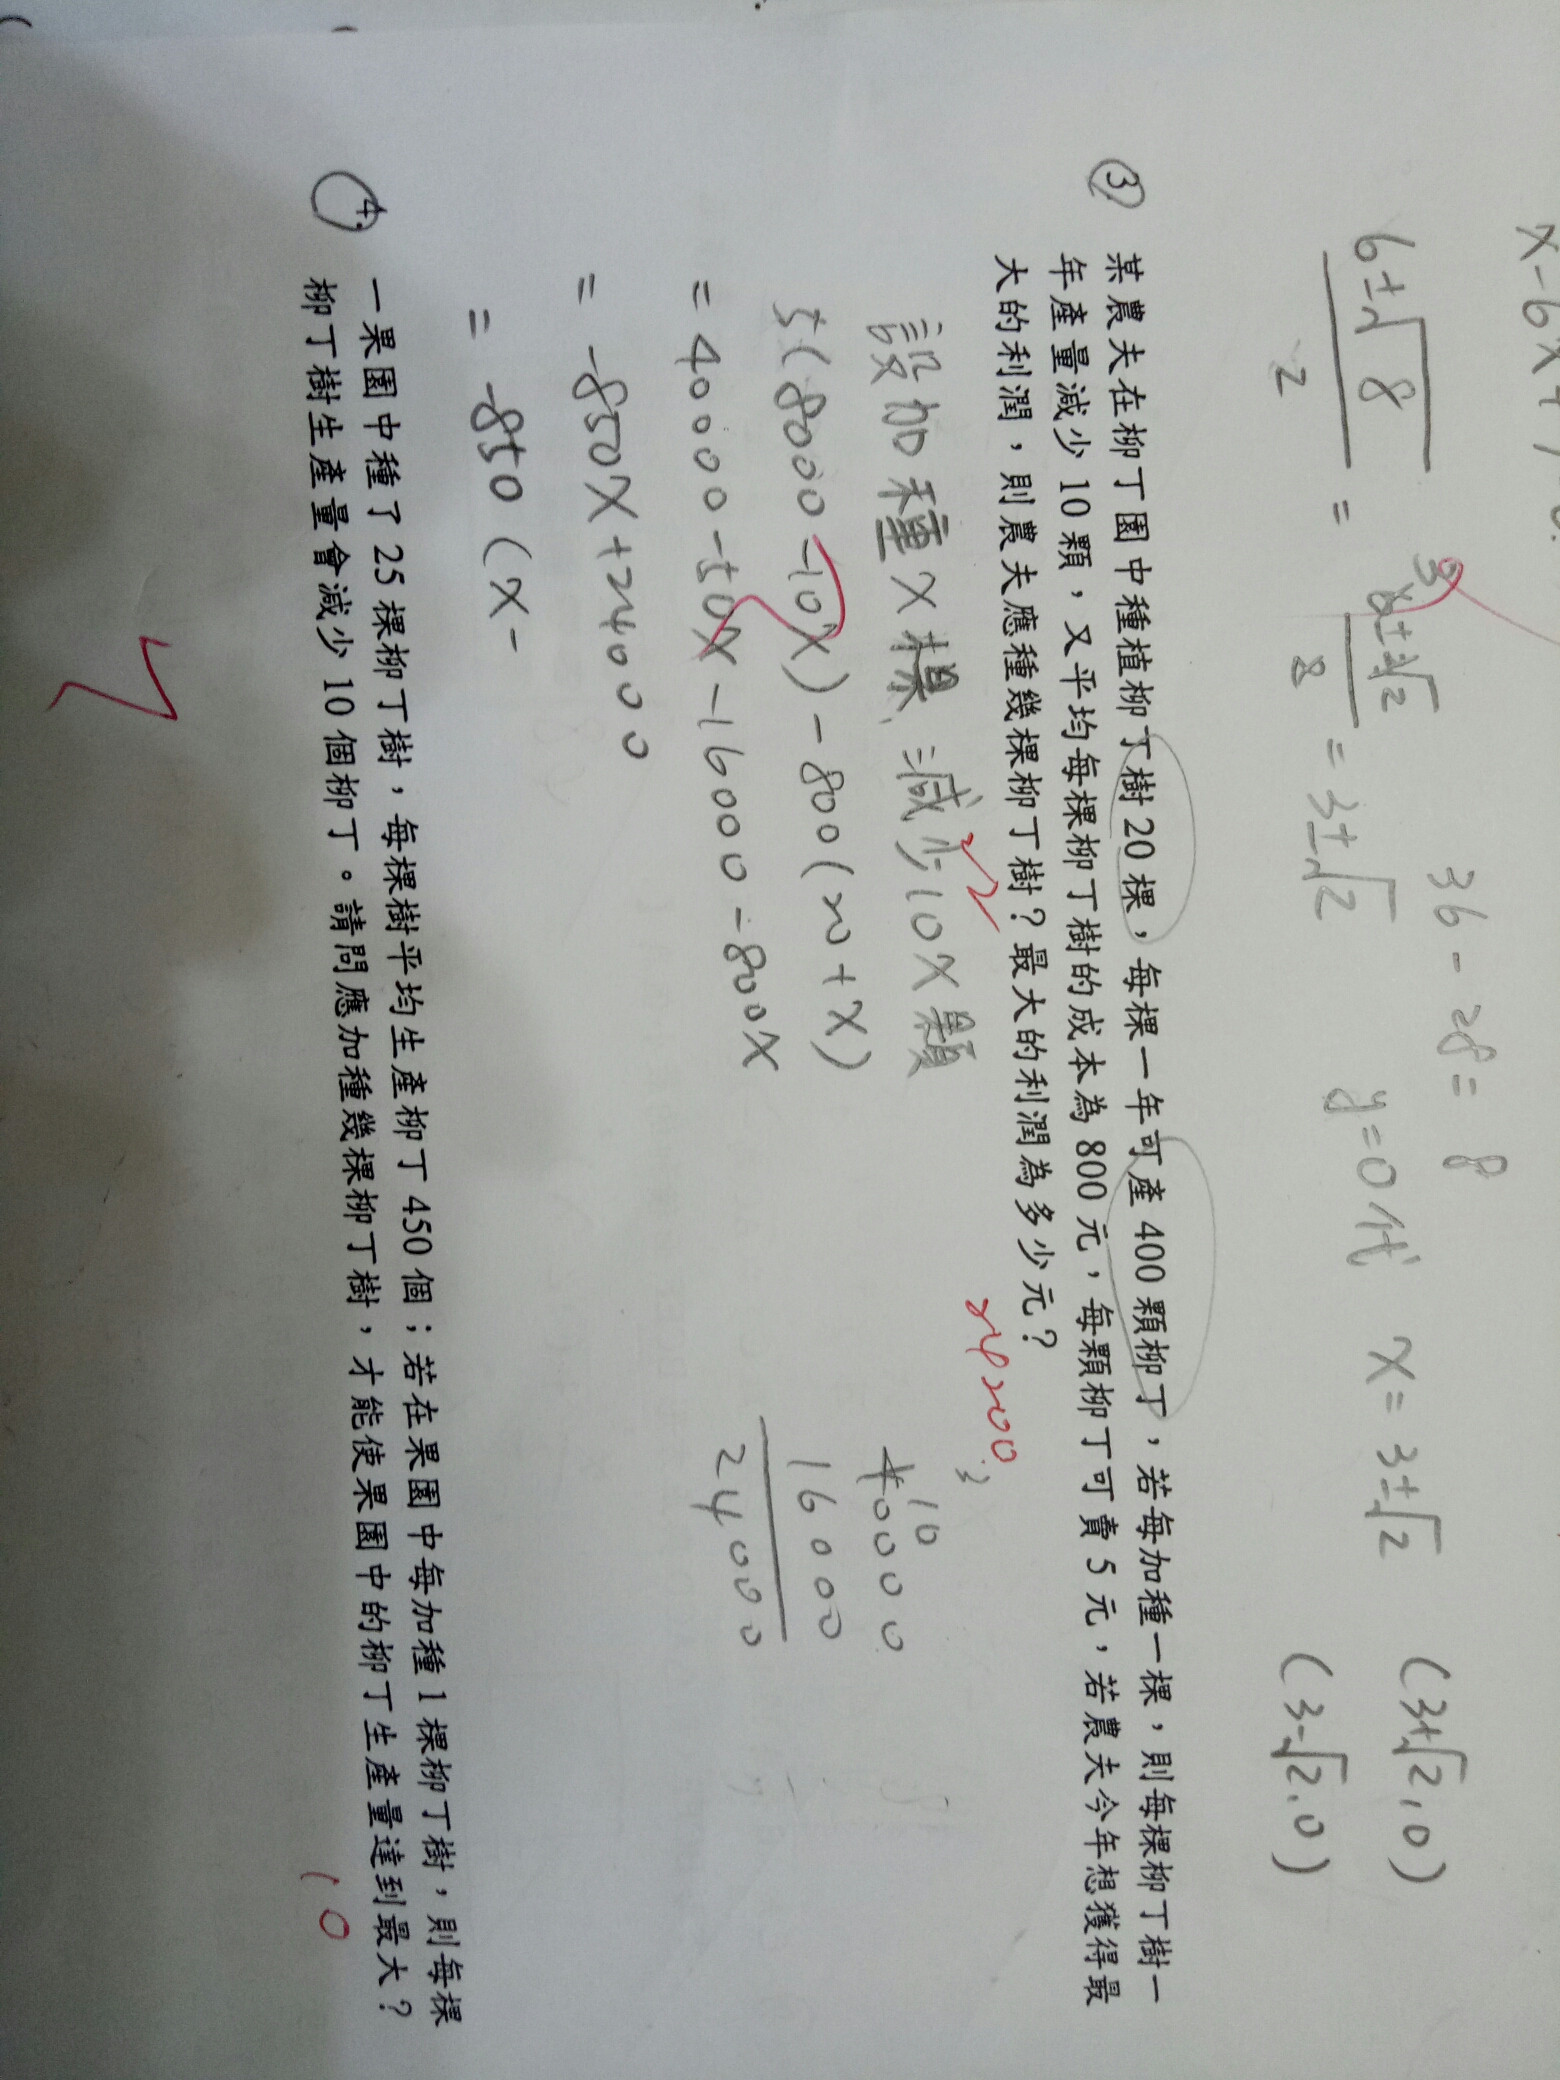 x-6x+7
36-28=8
6±√8
2
=
3
6±2√2
2
=3±√2
y=0代 x=3±√2
(3+√2,0)
(3-√2,0)
3 某農夫在柳丁園中種植柳丁樹20棵，每棵一年可產400顆柳丁，若每加種一棵，則每棵柳丁樹一
年產量減少10顆，又平均每棵柳丁樹的成本為800元，每顆柳丁可賣5元，若農夫今年想獲得最
大的利潤，則農夫應種幾棵柳丁樹？最大的利潤為多少元？
22
24200
設加種x棵,減少10x顆
5(8000-10x)-800(20+x)
=40000-50x-16000-800x
=-850x+24000
=-850(x-
3
10
40000
16000
24000
4. 一果園中種了25棵柳丁樹，每棵樹平均生產柳丁450個；若在果園中每加種1棵柳丁樹，則每棵
柳丁樹生產量會減少10個柳丁。請問應加種幾棵柳丁樹，才能使果園中的柳丁生產量達到最大？
10